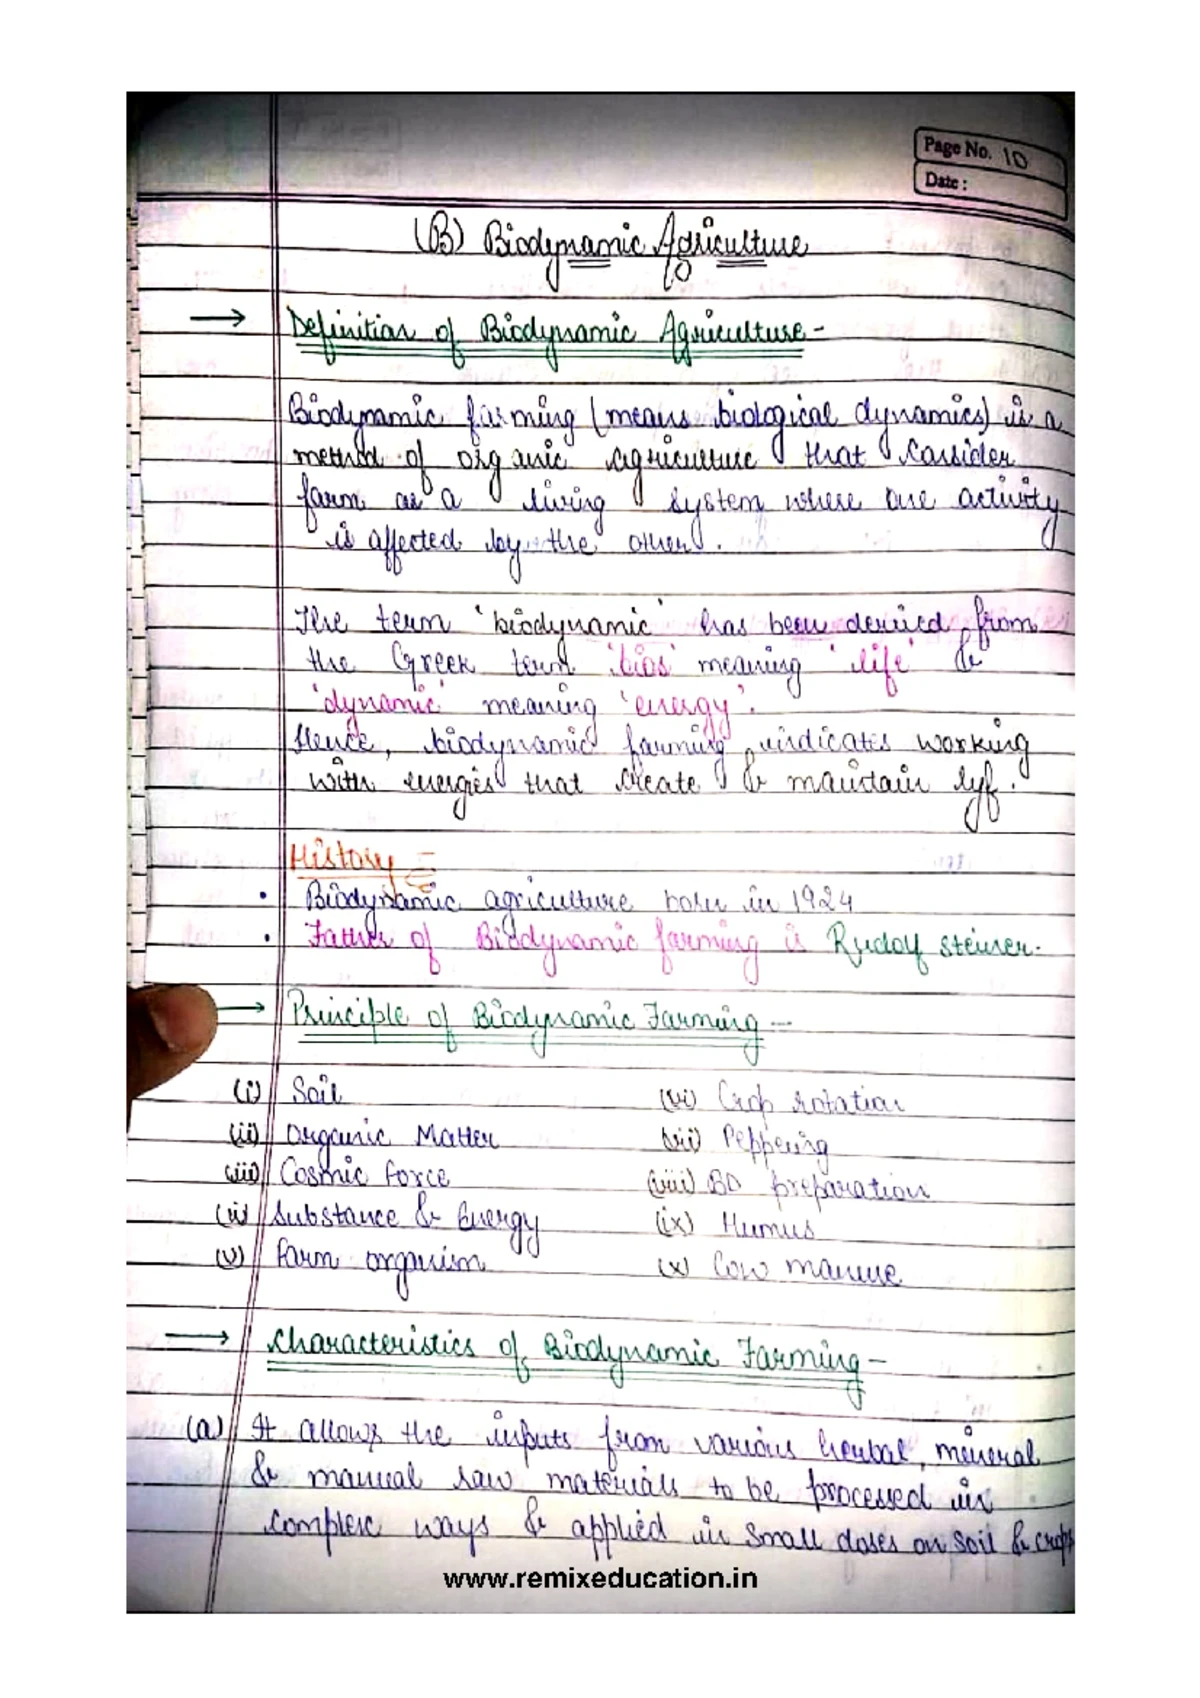 Page No. 10
Date :
(B) Biodynamic Agriculture
→ Definition of Biodynamic Agriculture -
Biodynamic farming (means biological dynamics) is a
method of organic agriculture that consider
farm as a living system where one activity
is affected by the other.
The term 'biodynamic' has been derived from
the Greek term 'bios' meaning 'life' &
'dynamic' meaning 'energy'.
Hence, biodynamic farming indicates working
with energies that create & maintain lyf.
History -
• Biodynamic agriculture born in 1924
• Father of Biodynamic farming is Rudolf steiner.
→ Principle of Biodynamic Farming -
(i) Soil (vi) Crop rotation
(ii) Organic Matter (vii) Peppering
(iii) Cosmic force (viii) BD preparation
(iv) Substance & Energy (ix) Humus
(v) Farm organism (x) Cow manure
→ Characteristics of Biodynamic Farming -
(a) It allows the inputs from various herbal, mineral
& manual raw materials to be processed in
complex ways & applied in small doses on soil & crops
www.remixeducation.in